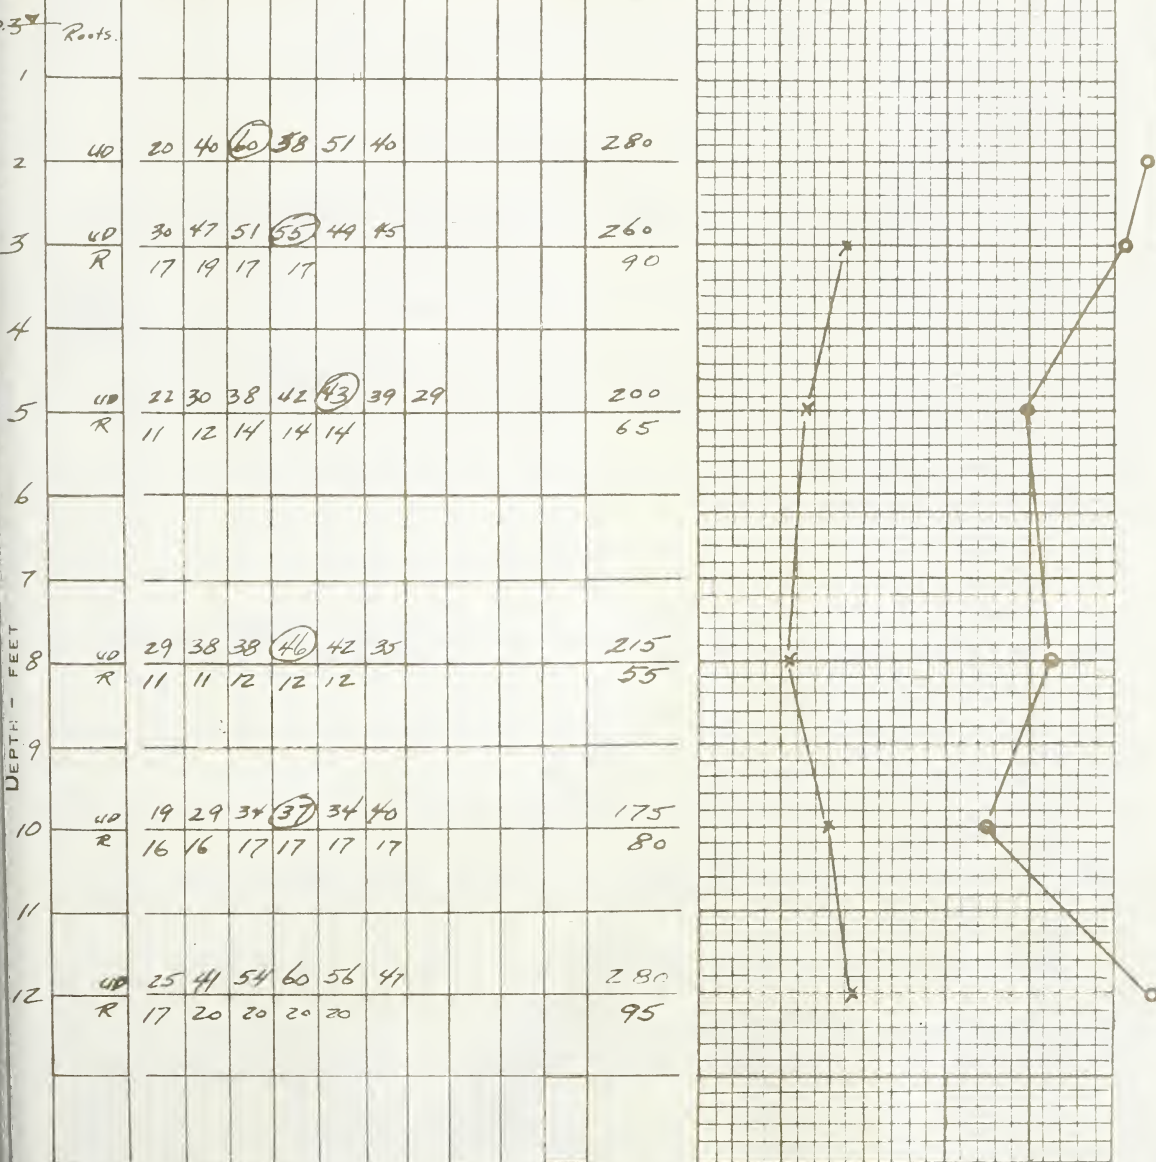 Roots.
1
2 UD 20 40 60 58 51 40 280
3 UD 30 47 51 55 49 45 260
R 17 19 17 17 90
4
5 UD 22 30 38 42 43 39 29 200
R 11 12 14 14 14 65
6
7
8 UD 29 38 38 46 42 35 215
R 11 11 12 12 12 55
DEPTH - FEET
9
10 UD 19 29 34 37 34 40 175
R 16 16 17 17 17 17 80
11
12 UD 25 41 54 60 56 47 280
R 17 20 20 20 20 95